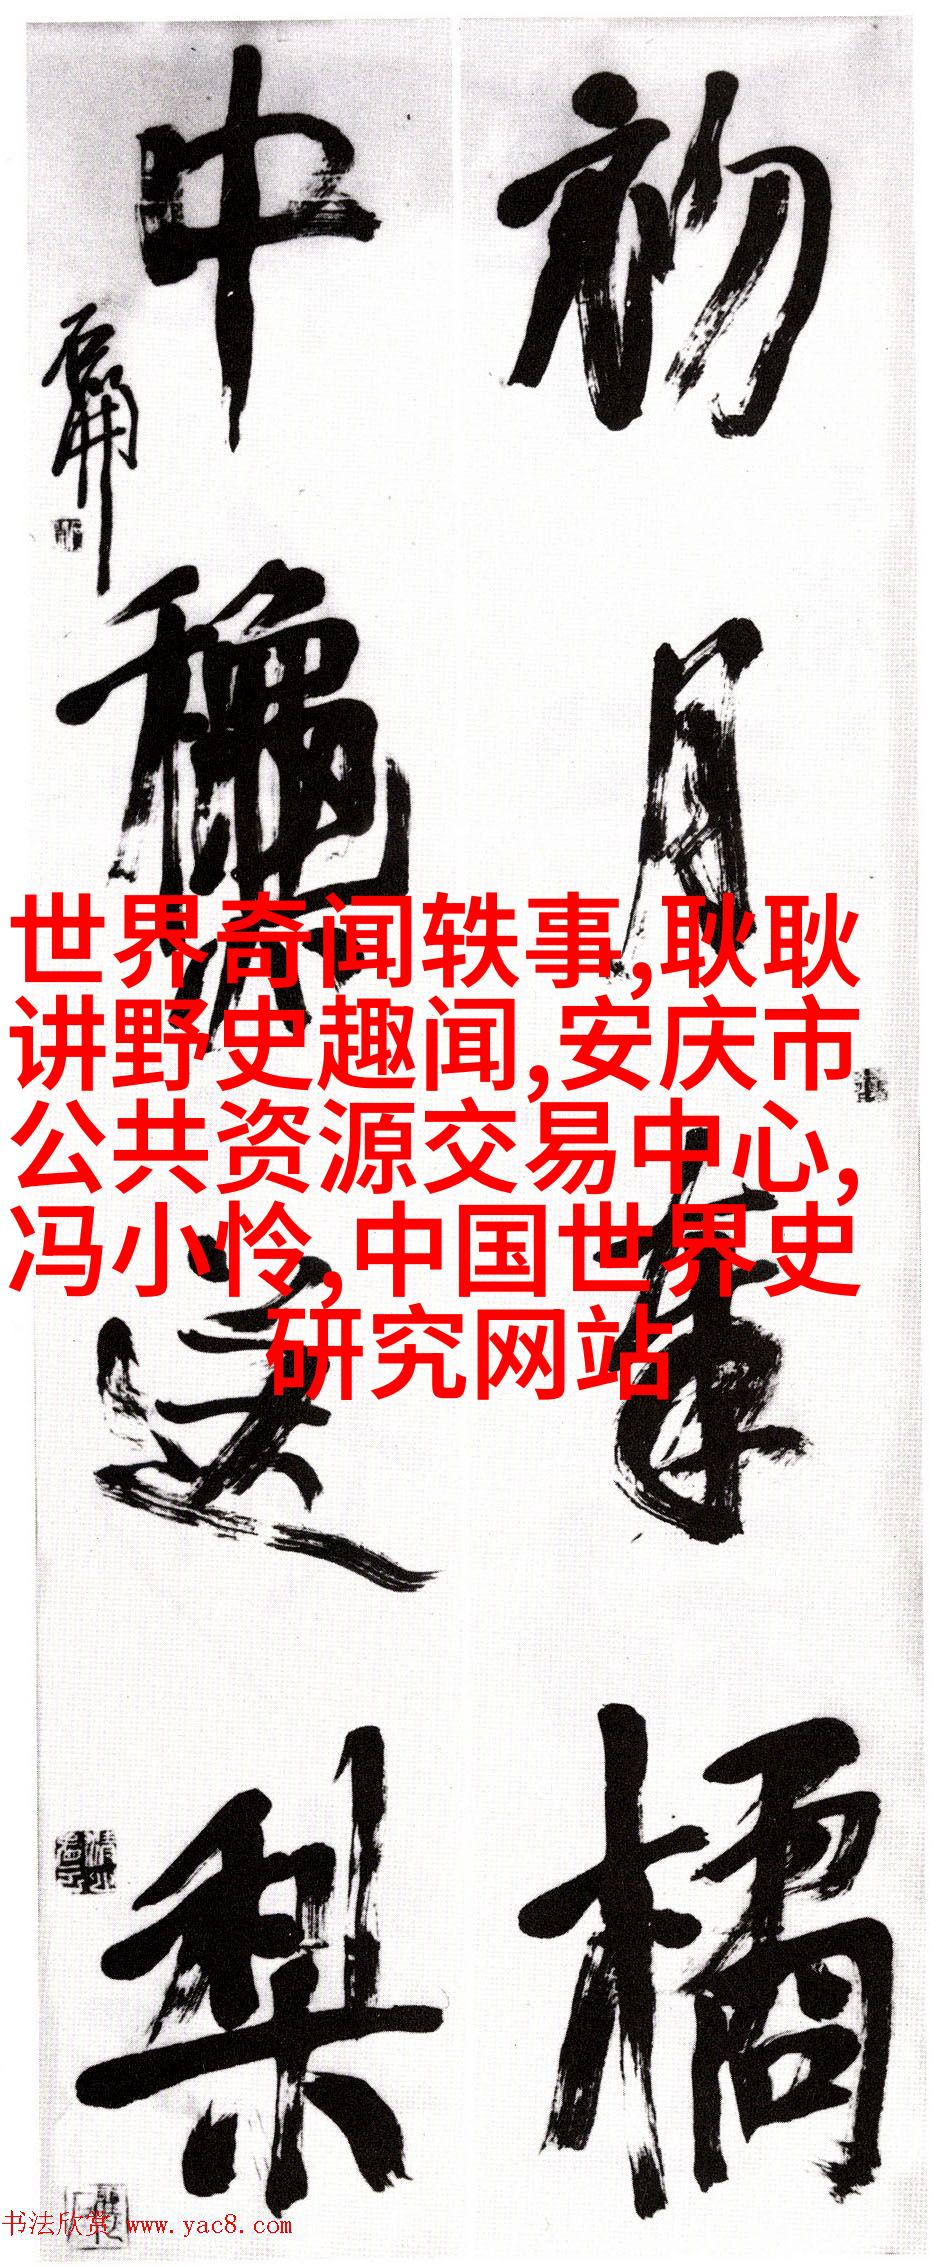 初月橘
中龝梨
世界奇闻轶事,耿耿
讲野史趣闻,安庆市
公共资源交易中心,
冯小怜,中国世界史
研究网站
书法欣赏 www.yac8.com